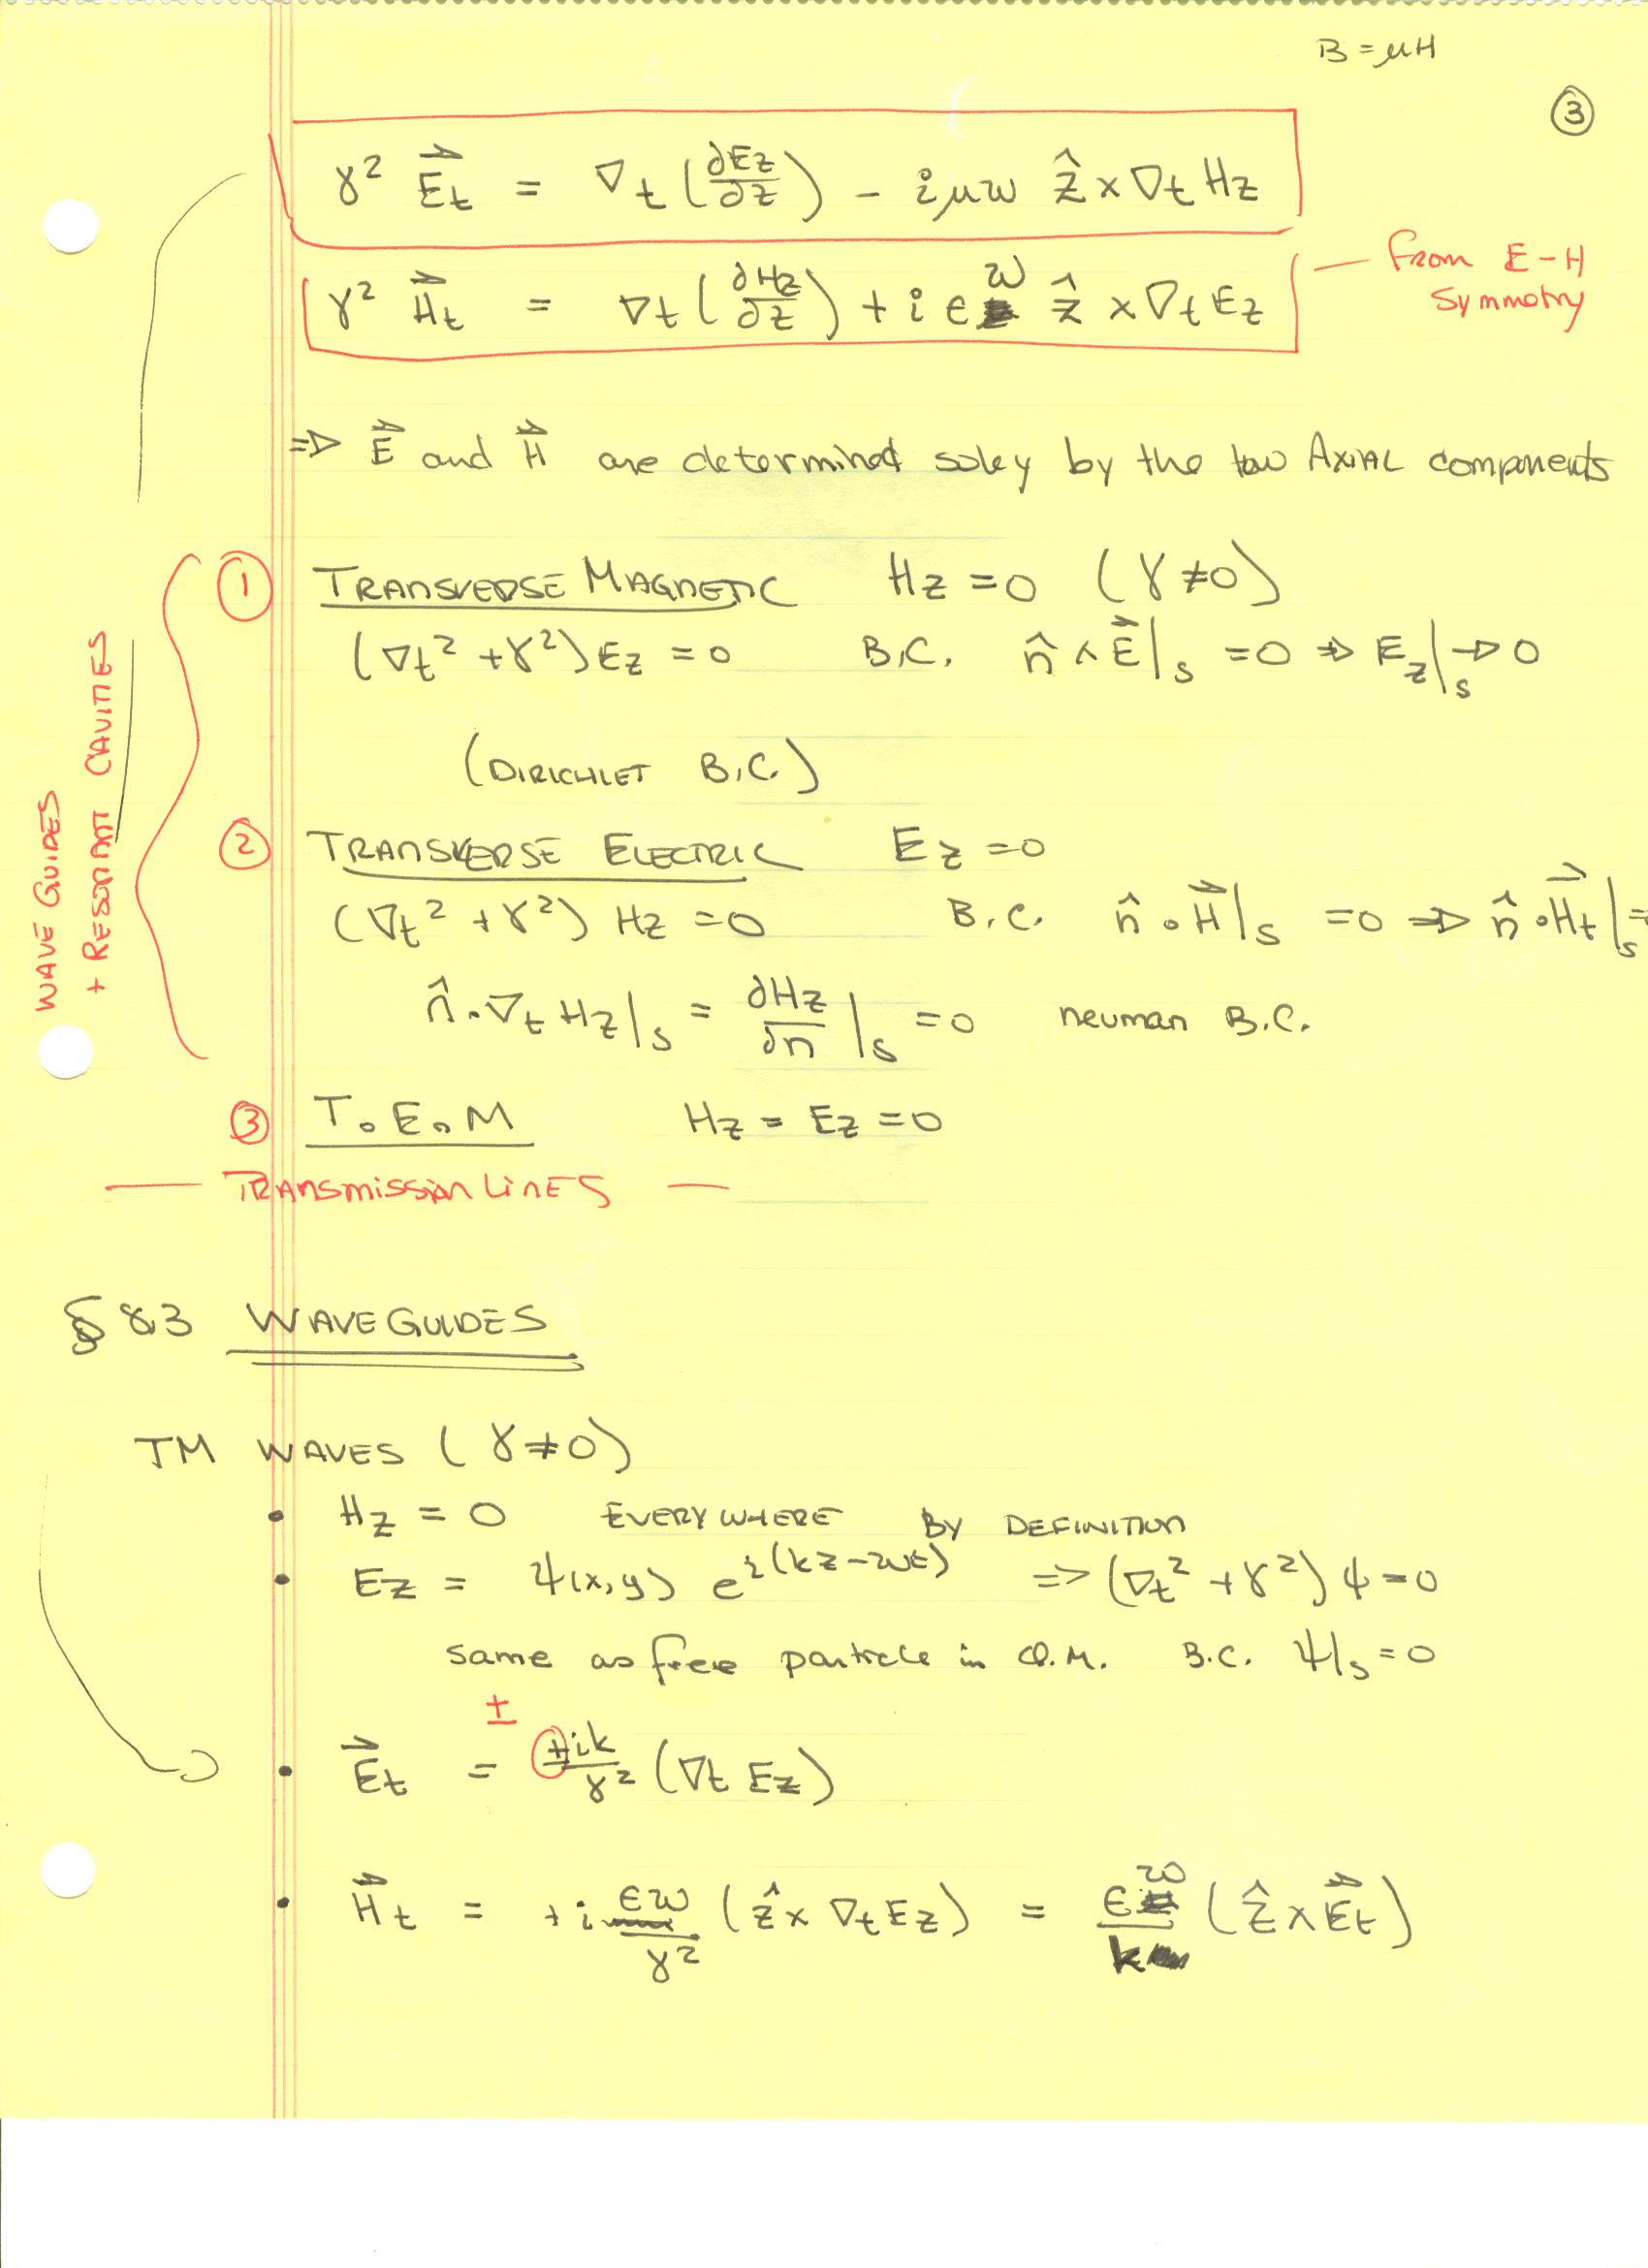 B = μH
③
γ² E⃗t = ∇t (∂Ez/∂z) - iμω ẑ × ∇t Hz
γ² H⃗t = ∇t (∂Hz/∂z) + i ε ω ẑ × ∇t Ez
— From E-H
Symmetry
⇒ E⃗ and H⃗ are determined soley by the two AXIAL components
① TRANSVERSE MAGNETIC Hz = 0 (γ ≠ 0)
(∇t² + γ²) Ez = 0 B.C. n̂ × E⃗|s = 0 ⇒ Ez|s → 0
(DIRICHLET B.C.)
WAVE GUIDES
+ RESONANT CAVITIES
② TRANSVERSE ELECTRIC Ez = 0
(∇t² + γ²) Hz = 0 B.C. n̂ · H⃗|s = 0 ⇒ n̂ · H⃗t|s =
n̂ · ∇t Hz|s = ∂Hz/∂n|s = 0 neuman B.C.
③ T.E.M Hz = Ez = 0
— TRANSMISSION LINES —
§ 8.3 WAVEGUIDES
TM WAVES (γ ≠ 0)
• Hz = 0 EVERYWHERE BY DEFINITION
• Ez = ψ(x,y) e^i(kz-ωt) => (∇t² + γ²) ψ = 0
same as free particle in Q.M. B.C. ψ|s = 0
±
• E⃗t = +ik/γ² (∇t Ez)
• H⃗t = + i εω/γ² (ẑ × ∇t Ez) = εω/k (ẑ × E⃗t)